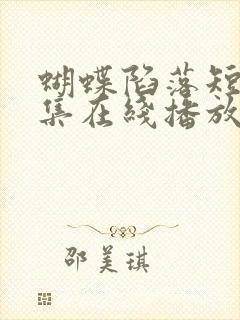 蝴蝶陷落短
集在线播放
邵美琪